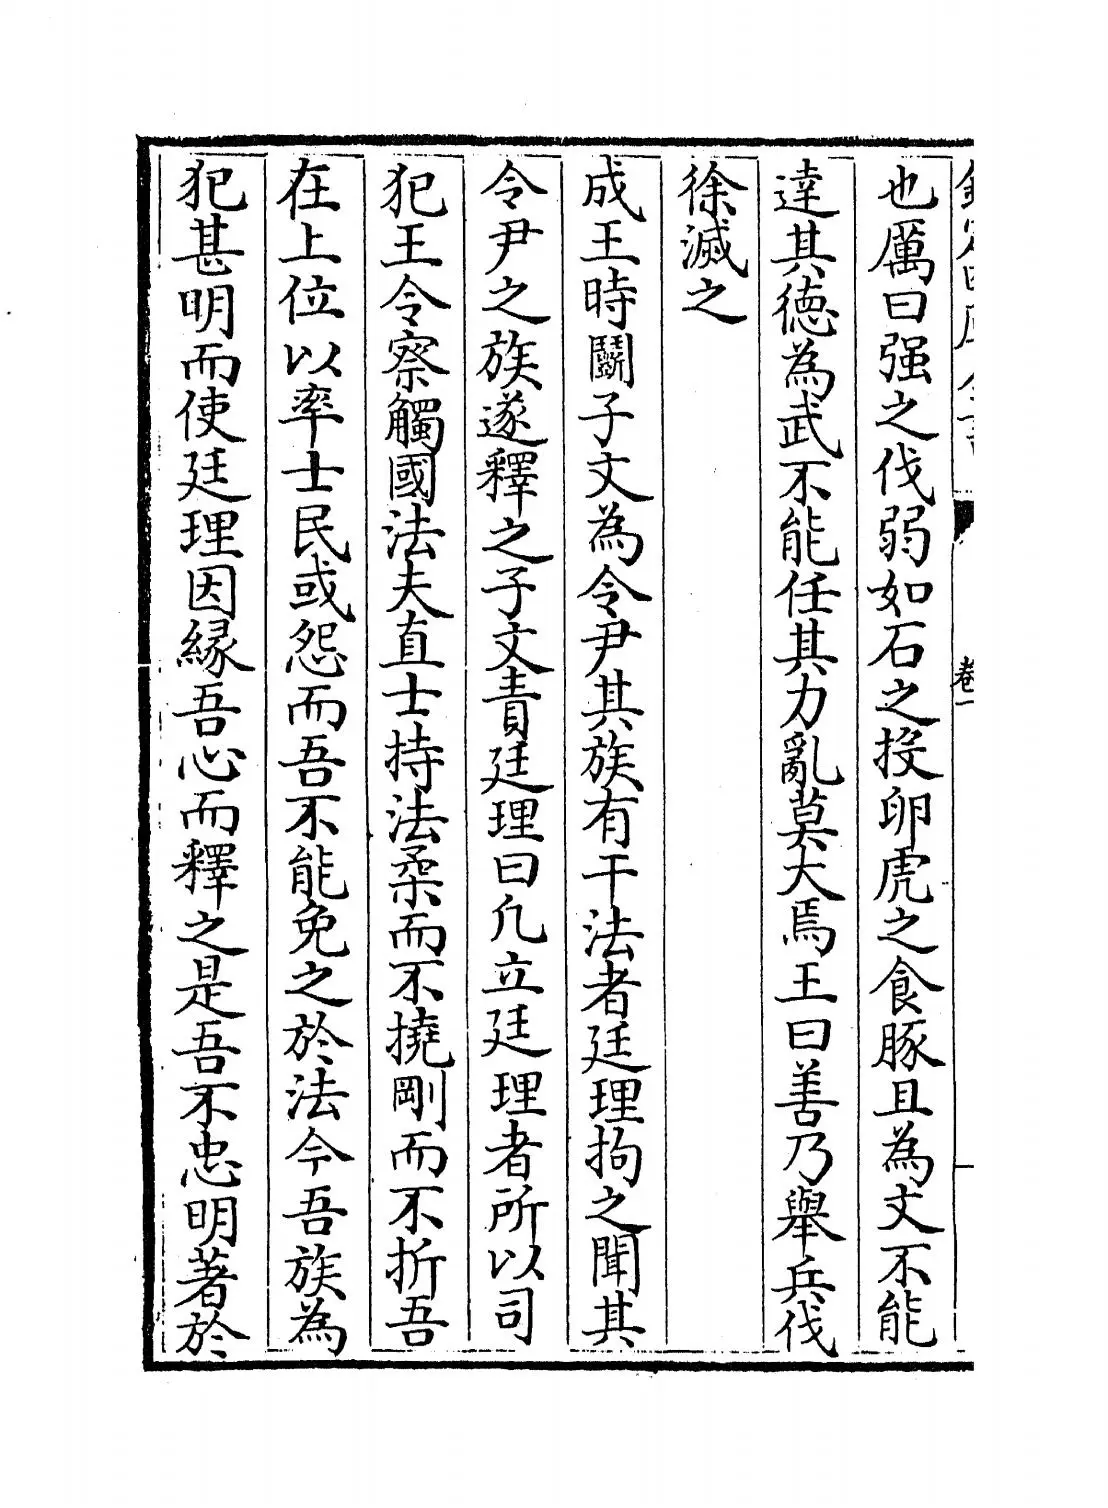 欽定四庫全書 卷一
也厲曰强之伐弱如石之投卵虎之食豚且為文不能
達其德為武不能任其力亂莫大焉王曰善乃舉兵伐
徐滅之
成王時鬬子文為令尹其族有干法者廷理拘之聞其
令尹之族遂釋之子文責廷理曰凡立廷理者所以司
犯王令察觸國法夫直士持法柔而不撓剛而不折吾
在上位以率士民或怨而吾不能免之於法今吾族為
犯甚明而使廷理因緣吾心而釋之是吾不忠明著於